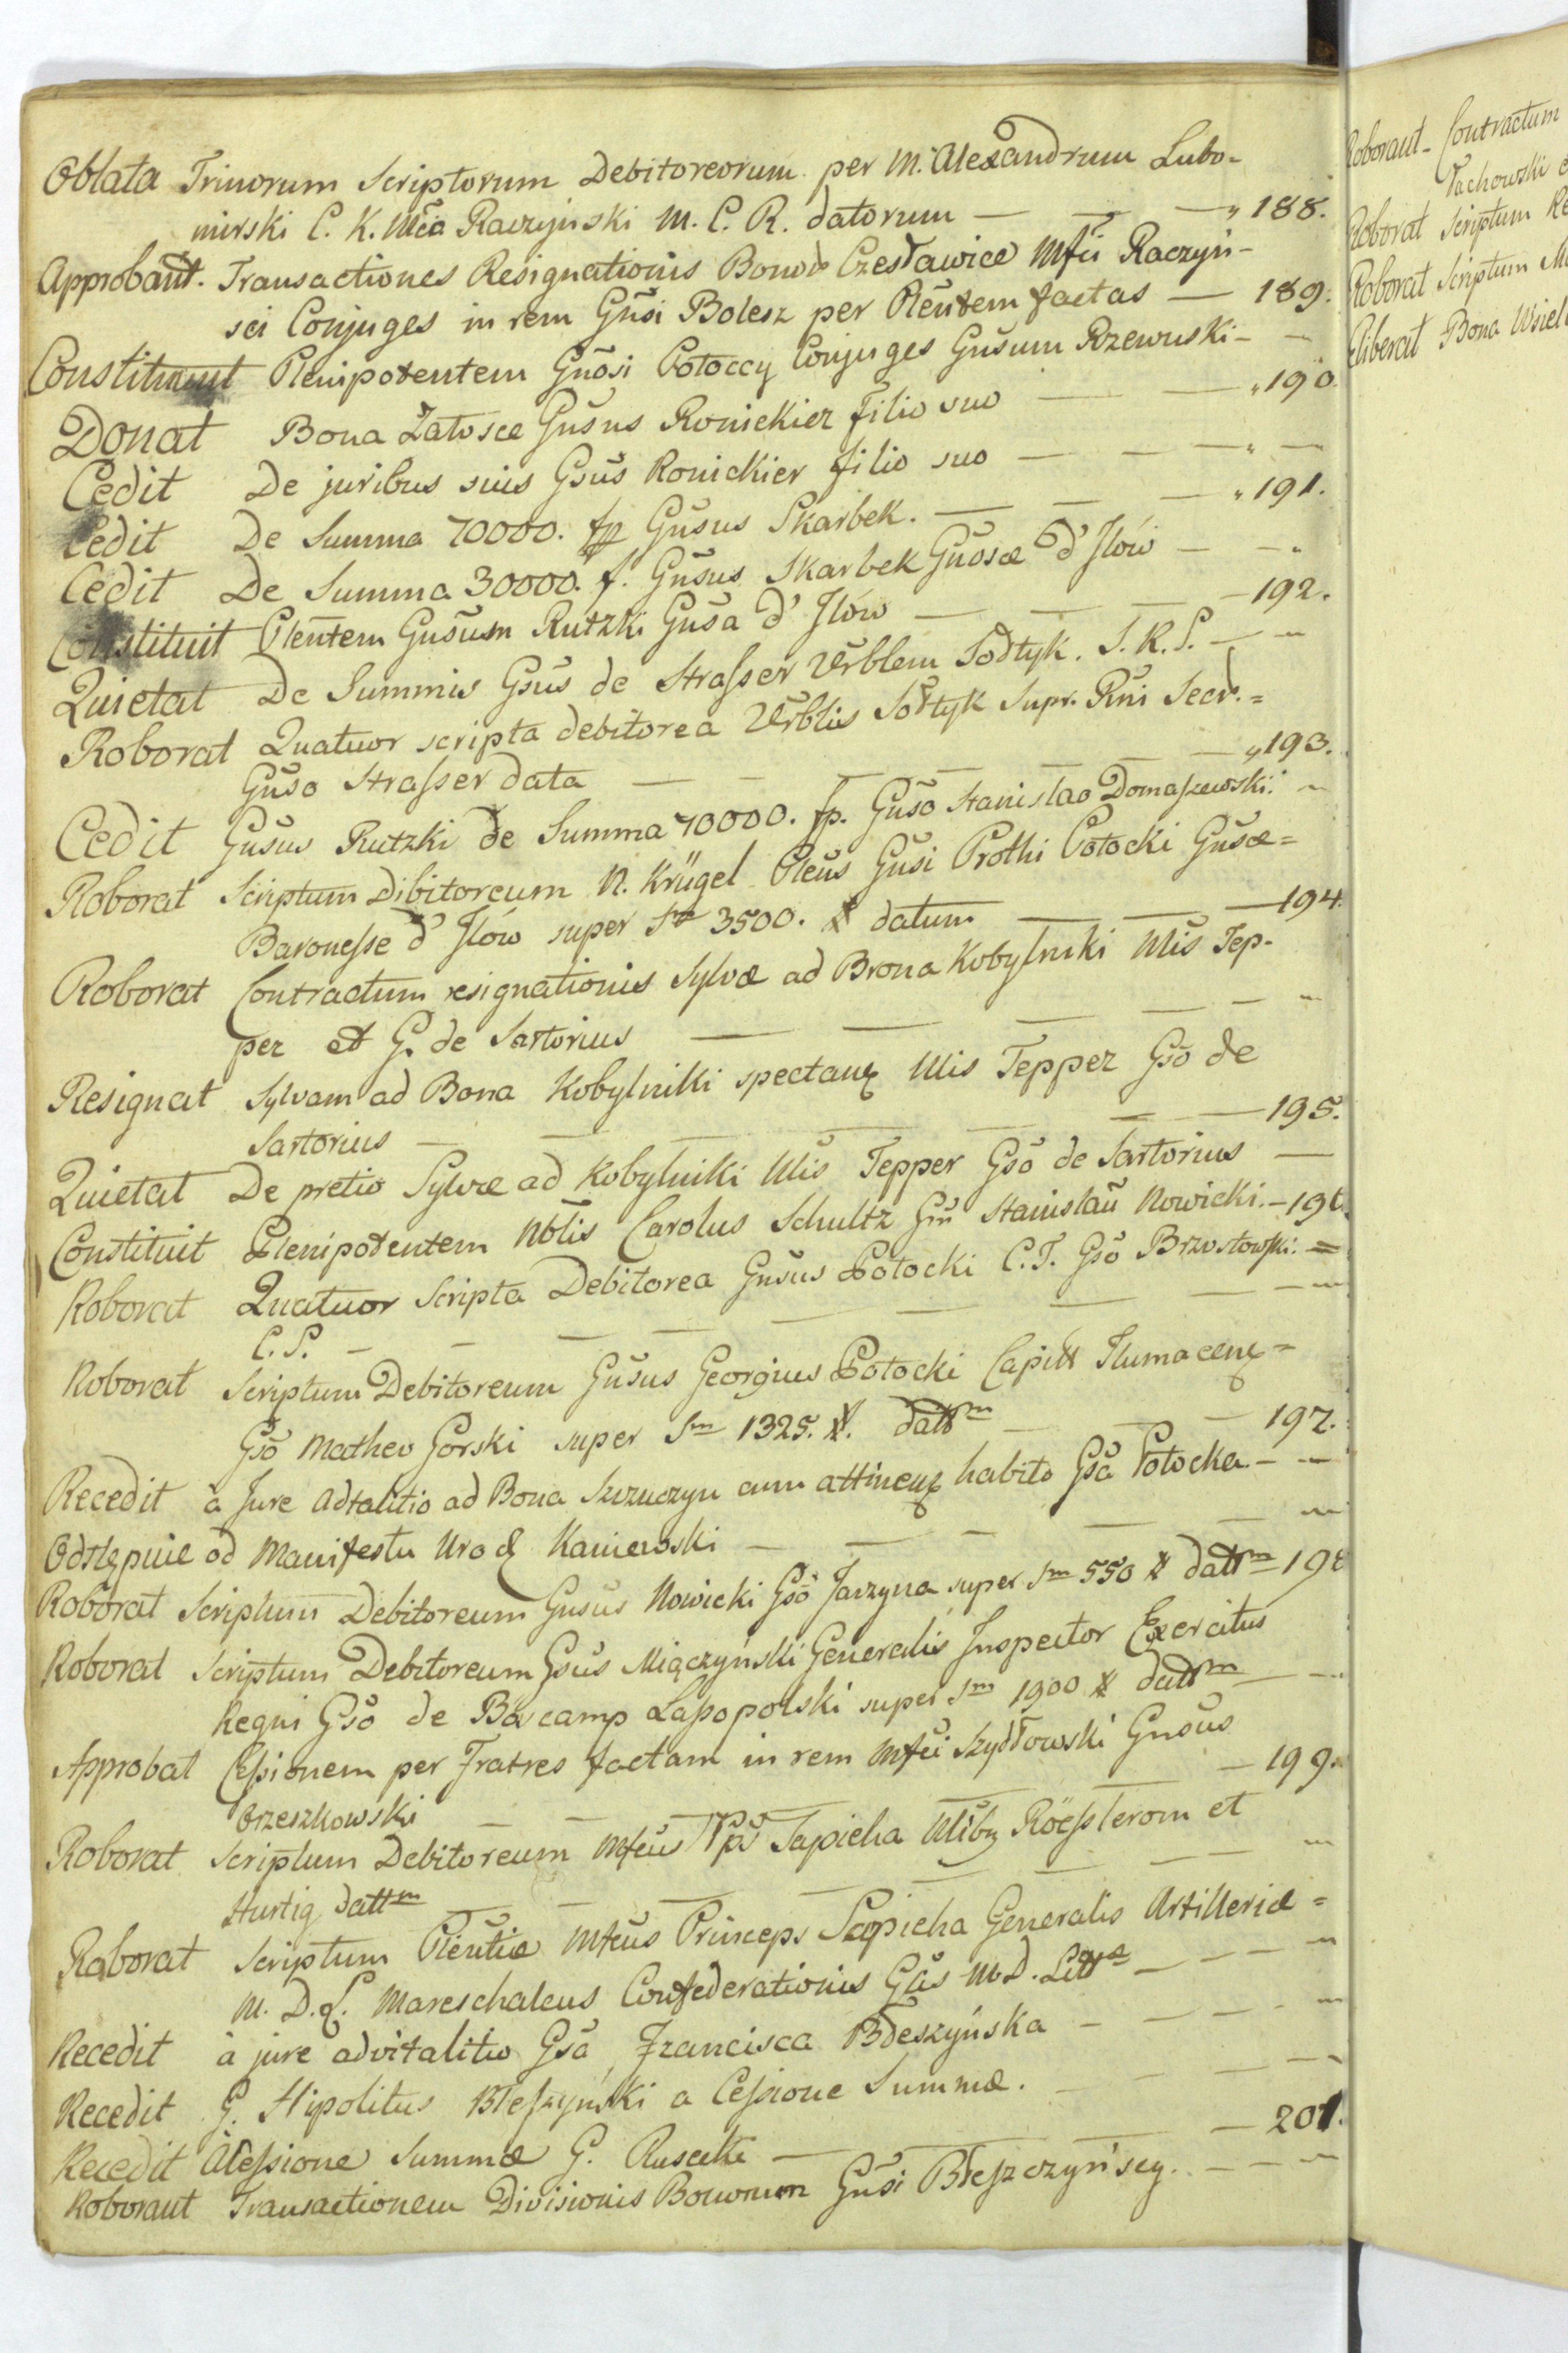 Oblata Trinorum Scriptorum Debitoreorum per M. Alexandrum Lubo-
mirski C. K. Mča Raczyński M. C. R. datorum — — —„ 188.
Approbant. Transactiones Resignationis Bonor Czesławice Mfci Raczyń-
sci Conjuges in rem Gnsi Bolesz per Plentem factas — 189.
Constituunt Plenipotentem Gnosi Potoccy Conjuges Gnsum Rzewuski - —
Donat Bona Załosce Gnsus Ronickier filio suo — — „190.
Cedit De juribus suis Gsus Ronickier filio suo — — — „ —
Cedit De Summa 70000. fp Gnsus Skarbek. — — — „191.
Cedit De Summa 30000. f. Gnsus Skarbek Gnosæ d' Jlów — - „
Constituit Plentem Gnsum Rutzki Gnsa d' Jlów — — — 192.
Quietat De Summis Gsus de Strasser Vrblem Sołtyk. S. R. S. — —
Roborat Quatuor scripta debitorea Vrblis Sołtyk Supr. Rni Secr. =
Gnso Strasser data — — — — — „193.
Cedit Gnsus Rutzki de Summa 70000. fp. Gnso Stanislao Domaszewski. —
Roborat Scriptum Dibitoreum N. Krügel Plens Gnsi Prothi Potocki Gnsæ =
Baronesse d' Jlów super Sm 3500. # datum — — — 194.
Roborat Contractum resignationis Sylvæ ad Brona Kobylniki Mis Tep-
per et G. de Sartorius — — — — —
Resignat Sylvam ad Bona Kobylniki spectanz Mis Tepper Gso de
Sartorius — — — — — — 195.
Quietat De pretio Sylvæ ad Kobylniki Mis Tepper Gso de Sartorius —
Constituit Plenipotentem Nblis Carolus Schultz Gm Stanislau Nowicki. - 196.
Roborat Quatuor Scripta Debitorea Gnsus Potocki C. T. Gso Brzostowski. =
C. P. — — — — — — —
Roborat Scriptum Debitoreum Gnsus Georgius Potocki Capitt Tlumacenz =
Gso Matheo Gorski super Sm 1325. #. dattm — — — 197.
Recedit à Jure Advalitio ad Bona Szczuczyn cum attinenz habito Gsa Potocka - —
Odstępuie od Manifestu Urodz Kaniewski — — — — — —
Roborat Scriptum Debitoreum Gnsus Nowicki Gso Jarzyna super Sm 550 # dattm 198
Roborat Scriptum Debitoreum Gsus Miączyński Generalis Inspector Exercitus
Regni Gso de Boscamp Lasopolski super Sm 1900 # dattm — —
Approbat Cessionem per Fratres factam in rem Mfci Szydłowski Gnsus
Orzeszkowski — — — — — — 199.
Roborat Scriptum Debitoreum Mfcus Pps Sapieha Mlibz Röesslerom et
Hurtig dattm — — — — — — —
Roborat Scriptum Plentiæ Mfcus Princeps Sapieha Generalis Artilleriæ =
M. D. L. Mareschalcus Confederationis Glis M. D. Littæ — — — —
Recedit à jure advitalitio Gsa Francisca Błeszyńska — — — —
Recedit G. Hipolitus Bleszyński a Cessione Summæ. — — — —
Recedit à Cessione Summæ G. Rusecki — — — — 201.
Roborant Transactionem Divisionis Bonorum Gnsi Bleszczyńscy. — — —
Roborant - Contractum
Roborat Scriptum
Roborat Scriptum
Bona